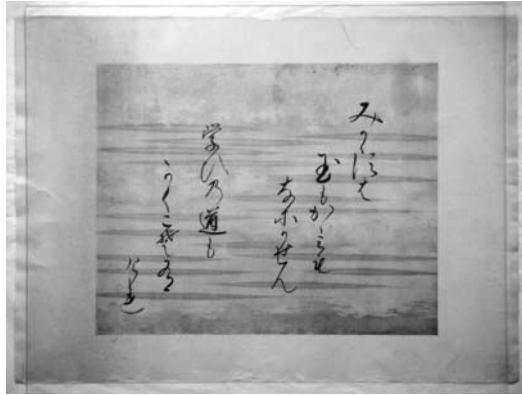 みかゝすは
玉もかゝみも
なにかせん
学ひの道も
かくこそあり
けれ